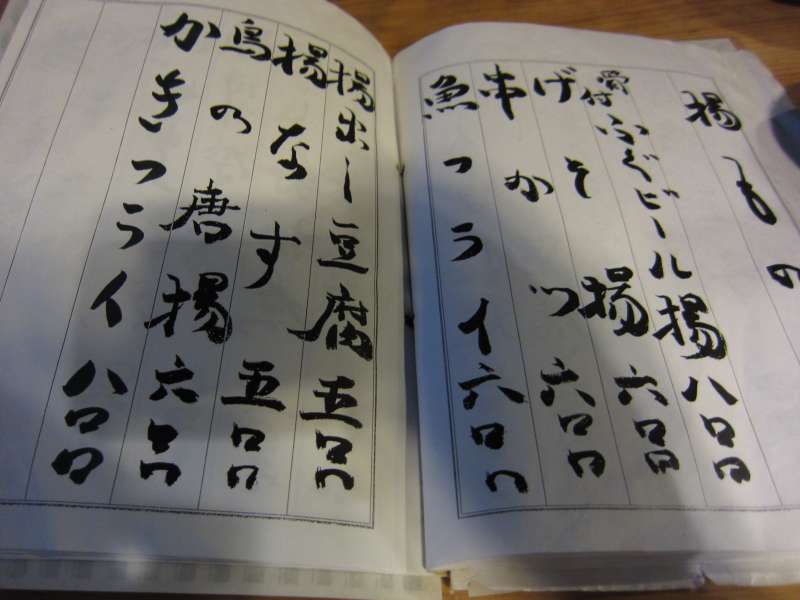 揚もの
骨付ふぐビール揚八〇〇
げそ揚六〇〇
串かつ六〇〇
魚フライ六〇〇
揚出し豆腐五〇〇
揚なす五〇〇
鳥の唐揚六〇〇
かきフライ八〇〇